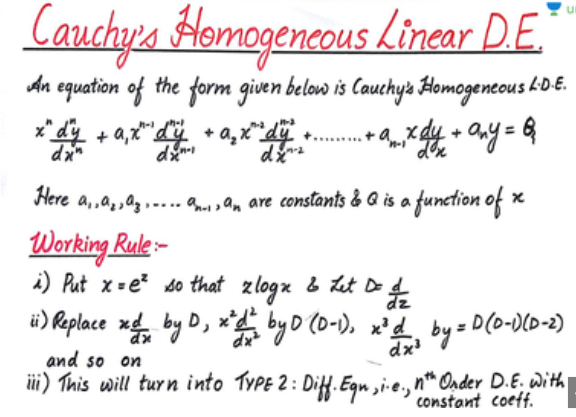 Cauchy's Homogeneous Linear D.E.
An equation of the form given below is Cauchy's Homogeneous L.D.E.
xⁿ dⁿy/dxⁿ + a₁xⁿ⁻¹ dⁿ⁻¹y/dxⁿ⁻¹ + a₂xⁿ⁻² dⁿ⁻²y/dxⁿ⁻² + ......... + aₙ₋₁ x dy/dx + aₙy = Q
Here a₁, a₂, a₃, ..... aₙ₋₁, aₙ are constants & Q is a function of x
Working Rule:-
i) Put x = eᶻ so that z logx & Let D = d/dz
ii) Replace xd/dx by D, x²d²/dx² by D (D-1), x³d/dx³ by = D(D-1)(D-2)
and so on
iii) This will turn into TYPE 2 : Diff. Eqn, i.e., nᵗʰ Order D.E. with
constant coeff.